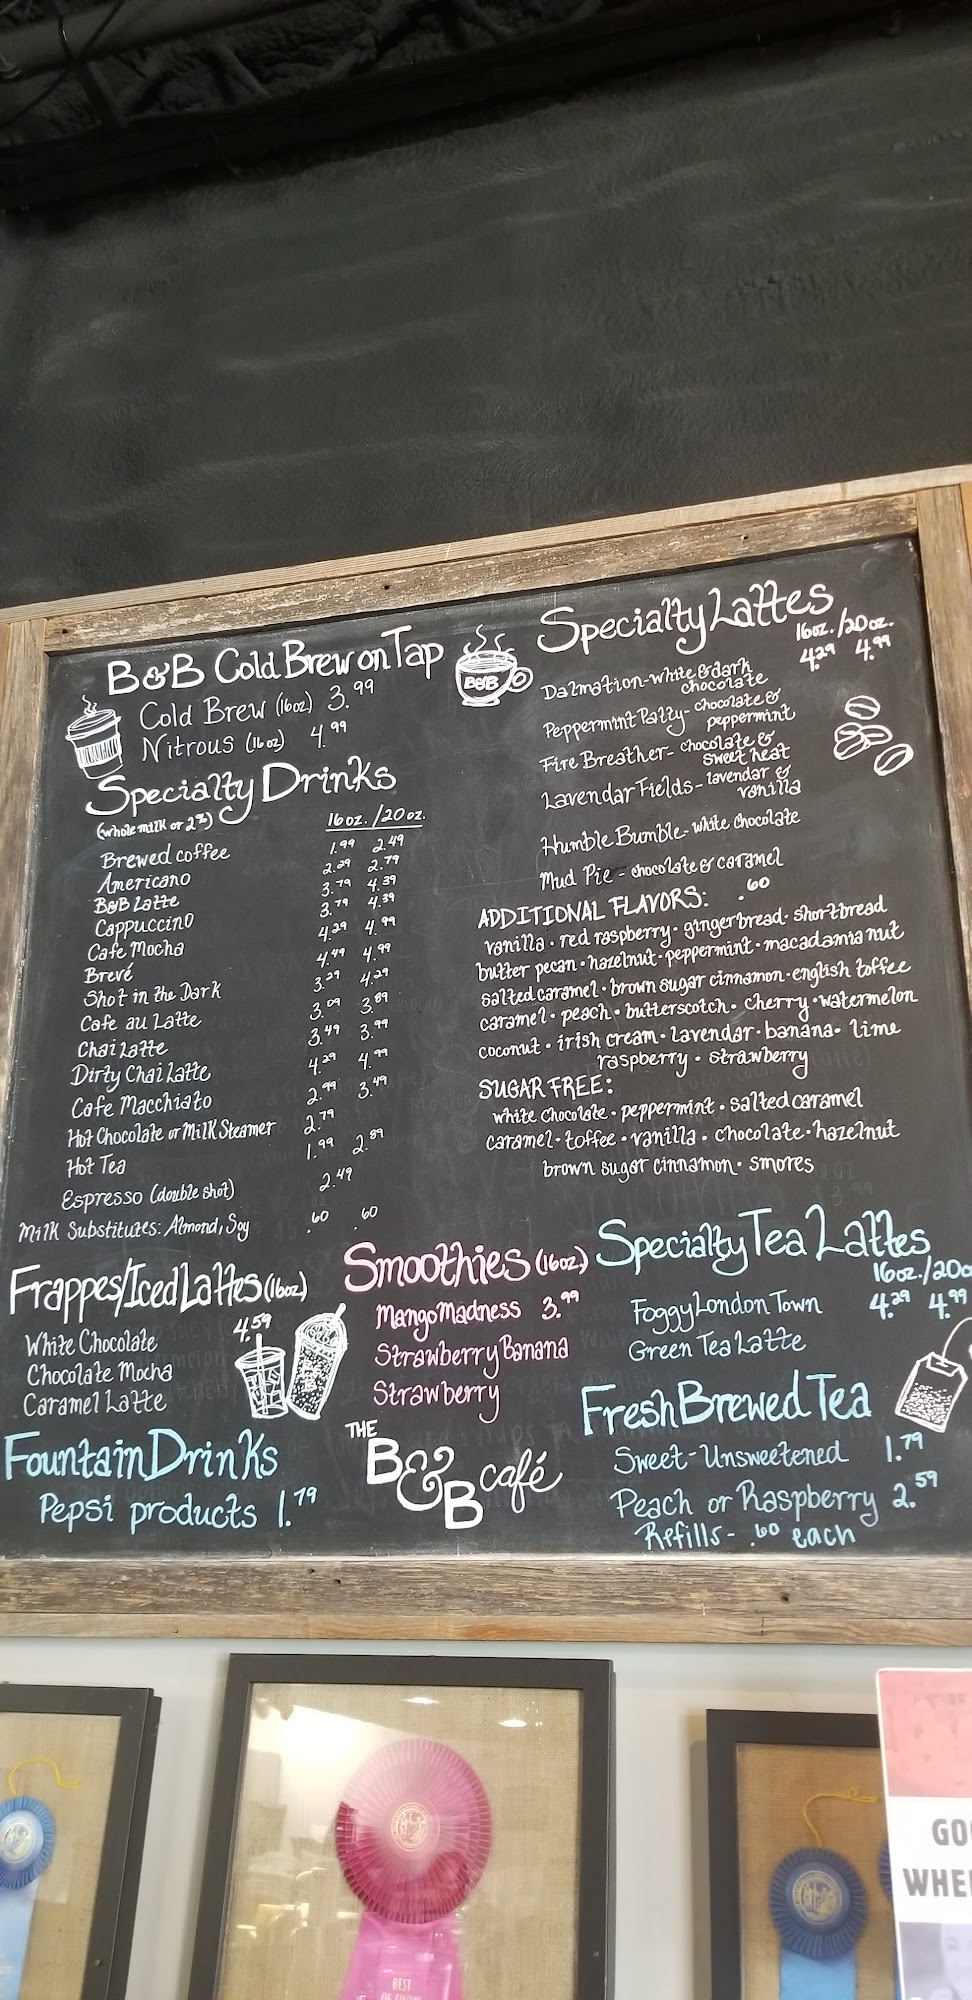 B&B Cold Brew on Tap
Cold Brew (16oz) 3.99
Nitrous (16oz) 4.99
Specialty Drinks
(whole milk or 2%)
16oz./20oz.
Brewed coffee 1.99 2.49
Americano 2.29 2.79
B&B Latte 3.79 4.39
Cappuccino 3.79 4.39
Cafe Mocha 4.29 4.99
Brevé 4.49 4.99
Shot in the Dark 3.29 4.29
Cafe au Latte 3.09 3.89
Chai Latte 3.49 3.99
Dirty Chai Latte 4.29 4.99
Cafe Macchiato 2.99 3.49
Hot Chocolate or Milk Steamer 2.79
Hot Tea 1.99 2.89
Espresso (double shot) 2.49
Milk Substitutes: Almond, Soy .60 .60
B&B
Specialty Lattes
16oz./20oz.
4.29 4.99
Dalmation-white & dark
chocolate
Peppermint Patty-chocolate &
peppermint
Fire Breather-chocolate &
sweet heat
Lavendar Fields-lavendar &
vanilla
Humble Bumble-white chocolate
Mud Pie-chocolate & caramel
ADDITIONAL FLAVORS: .60
vanilla • red raspberry • gingerbread • shortbread
butter pecan • hazelnut • peppermint • macadamia nut
salted caramel • brown sugar cinnamon • english toffee
caramel • peach • butterscotch • cherry • watermelon
coconut • irish cream • lavendar • banana • lime
raspberry • strawberry
SUGAR FREE:
white chocolate • peppermint • salted caramel
caramel • toffee • vanilla • chocolate • hazelnut
brown sugar cinnamon • smores
Frappes/Iced Lattes (16oz)
White Chocolate 4.59
Chocolate Mocha
Caramel Latte
Smoothies (16oz.)
Mango Madness 3.99
Strawberry Banana
Strawberry
Specialty Tea Lattes
16oz./20o
Foggy London Town 4.29 4.99
Green Tea Latte
Fountain Drinks
Pepsi products 1.79
THE
B&B café
Fresh Brewed Tea
Sweet-Unsweetened 1.79
Peach or Raspberry 2.59
Refills- .60 each
BEST
OF SHOW
GO
WHE